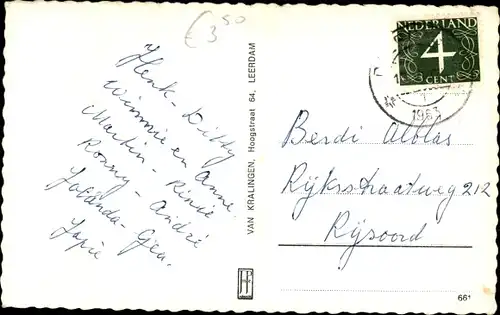 € 3 50
Henk - Ditty
Wimmie en Anne.
Martin - Rinie
Ronny - André
Jolanda - Gea.
Japie
VAN KRALINGEN, Hoogstraat 64, LEERDAM
NEDERLAND
4
CENT
1963
Berdi Alblas
Rijksstraatweg 212
Rijsoord
66*